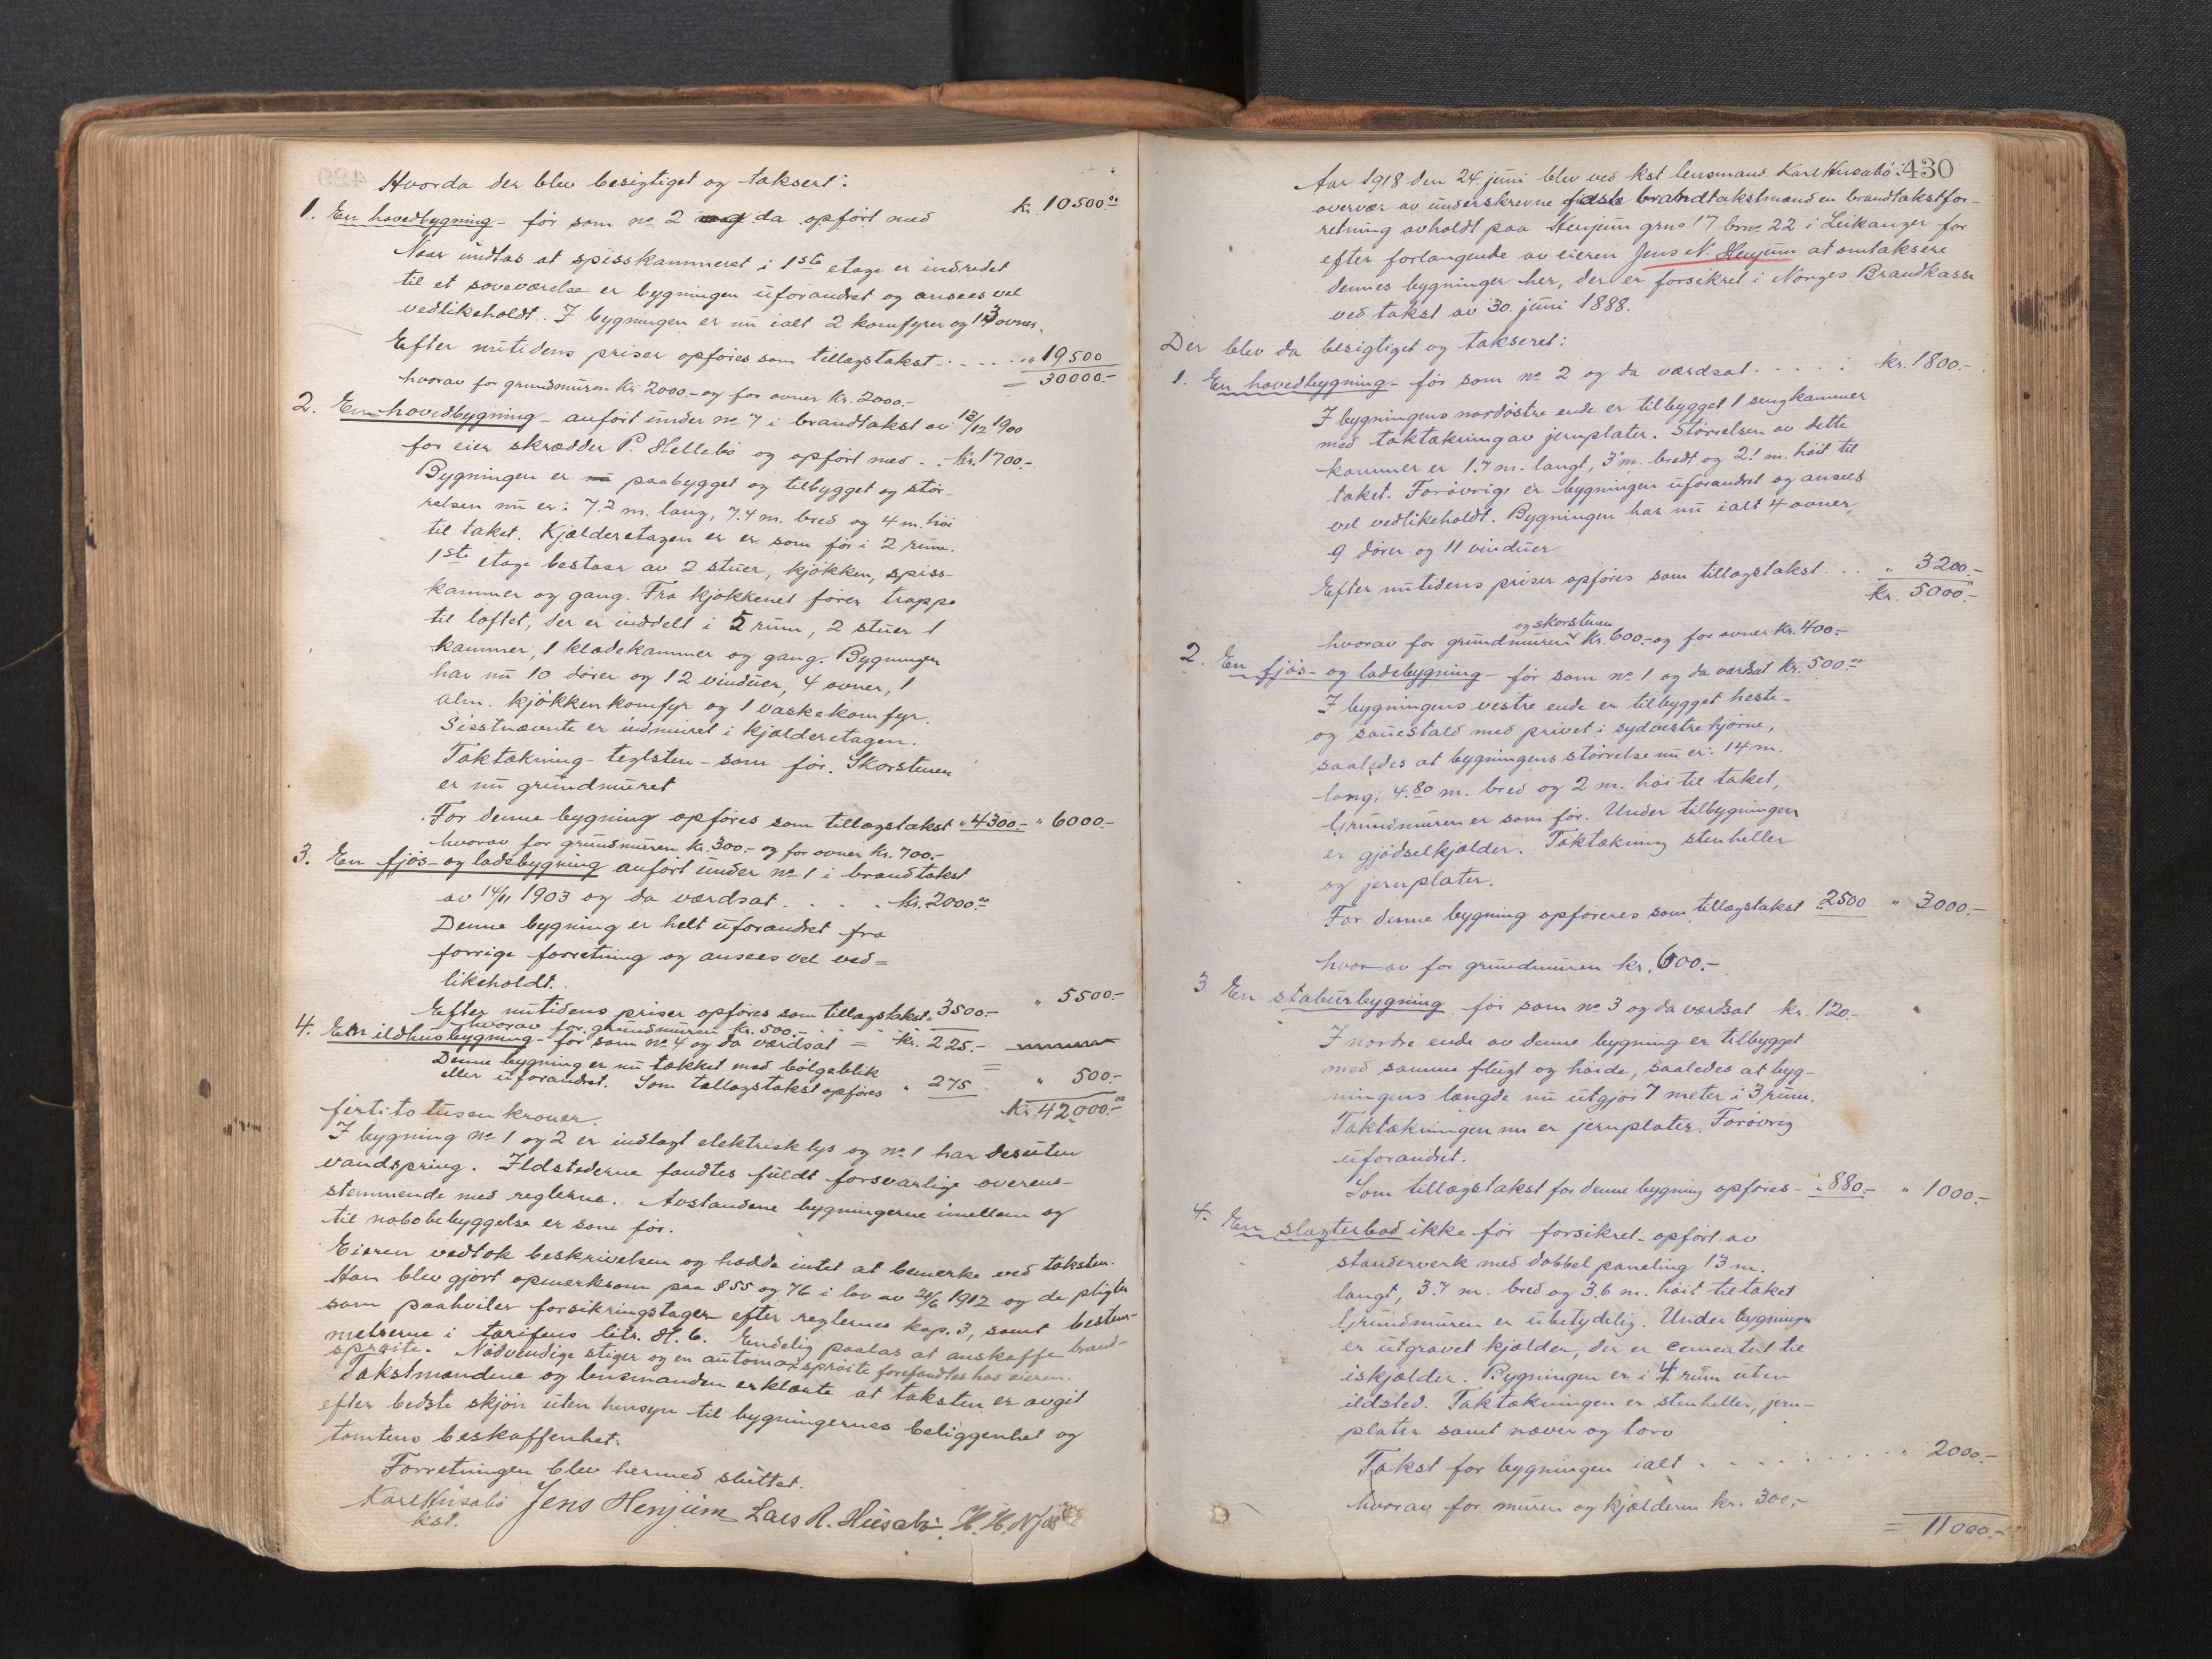 Hvorda der blev besigtiget og taksert:
1. En hovedbygning - før som no 2 og da opført med kr. 10500.00
Naar undtas at spisskammeret i 1ste etage er indredet
til et soveværelse er bygningen uforandret og ansees vel
vedlikeholdt. I bygningen er nu ialt 2 komfyrer og 13 ovner.
Efter nutidens priser opføres som tillægstakst . . . . " 19500
= 30000.-
hvorav for grundmuren kr. 2000.- og for ovner kr. 2000.-
2. En hovedbygning - anført under no 7 i brandtakst av 13/12 1900
for eier skrædder P. Hellebø og opført med . . kr. 1700.-
Bygningen er paabygget og tilbygget og stør-
relsen nu er: 7.2 m. lang, 7.4 m. bred og 4 m. høi
til taket. Kjælderetagen er er som før i 2 rum.
1ste etage bestaar av 2 stuer, kjøkken, spiss-
kammer og gang. Fra kjøkkenet fører trappe
til loftet, der er inddelt i 5 rum, 2 stuer 1
kammer, 1 klædekammer og gang. Bygningen
har nu 10 dører og 12 vinduer, 4 ovner, 1
alm. kjøkkenkomfyr og 1 vaskekomfyr.
Sisstnævnte er indmuret i kjælderetagen.
Taktækning - teglsten - som før. Skorstenen
er nu grundmuret
For denne bygning opføres som tillægstakst " 4300.- " 6000.-
hvorav for grundmuren kr. 300.- og for ovner kr. 700.-
3. En fjøs- og ladebygning anført under no 1 i brandtakst
av 14/11 1903 og da værdsat . . . . kr. 2000.00
Denne bygning er helt uforandret fra
forrige forretning og ansees vel ved=
likeholdt.
Efter nutidens priser opføres som tillægstakst " 3500.- " 5500.-
hvorav for grundmuren kr. 500.-
4. En ildhusbygning - før som no 4 og da værdsat = kr. 225.-
Denne bygning er nu tækket med bølgeblik
eller uforandret. Som tællægstakst opføres " 275 " 500.-
kr. 42000.-00
førtito tusen kroner.
I bygning no 1 og 2 er indlagt elektrisk lys og no 1 har desuten
vandspring. Ildstederne fandtes fuldt forsvarlige overens-
stemmende med reglerne. Avstandene bygningerne imellem og
til nabobebyggelse er som før.
Eieren vedtok beskrivelsen og hadde intet at bemerke ved taksten.
Han blev gjort opmerksom paa § 55 og 76 i lov av 20/6 1912 og de pligter
som paahviler forsikringstager efter reglernes kap. 3, samt bestem-
melserne i tarifens litr. H. 6. Endelig paalas at anskaffe brand-
sprøite. Nødvendige stiger og en automaxsprøite forefandtes hos eieren.
Takstmændene og lensmanden erklærte at taksten er avgit
efter bedste skjøn uten hensyn til bygningernes beliggenhet og
tomtens beskaffenhet.
Forretningen blev hermed sluttet.
Karl Husabø Jens Henjum Lars R. Husabø. H. H. Njøs
kst.
430
Aar 1918 den 24. juni blev ved kst lensmand Karl Husabø i
overvær av underskrevne faste brandtakstmænd en brandtakstfor-
retning avholdt paa Henjum grno 17 brno 22 i Leikanger for
efter forlangende av eieren Jens N. Henjum at omtaksere
dennes bygninger her, der er forsikret i Norges Brandkasse
ved takst av 30. juni 1888.
Der blev da besigtiget og takseret:
1. En hovedbygning - før som no 2 og da værdsat . . . . : kr. 1800.-
I bygningens nordøstre ende er tilbygget 1 sengkammer
med taktækning av jernplater. Størrelsen av dette
kammer er 1.7 m. langt, 3 m. bredt og 2.1 m. høit til
taket. Forøvrig er bygningen uforandret og ansees
vel vedlikeholdt. Bygningen har nu ialt 4 ovner,
9 dører og 11 vinduer
Efter nutidens priser opføres som tillægstakst . . . " 3200.-
kr. 5000.-
og skorstenen
hvorav for grundmuren kr. 600.- og for ovner kr. 400.-
2. En fjøs- og ladebygning - før som no 1 og da værdsat kr. 500.00
I bygningens vestre ende er tilbygget heste-
og sauestald med privet i sydvestre hjørne,
saaledes at bygningens størrelse nu er: 14 m.
lang, 4.80 m. bred og 2 m. høi til taket,
Grundmuren er som før. Under tilbygningen
er gjødselkjælder. Taktækning stenheller
og jernplater.
For denne bygning opføreres som tillægstakst 2500 " 3000.-
hvorav for grundmuren kr. 600.-
3 En stabursbygning før som no 3 og da værdsat kr. 120.-
I nordre ende av denne bygning er tilbygget
med samme flugt og høide, saaledes at byg-
ningens længde nu utgjør 7 meter i 3 rum.
Taktækningen nu er jernplater. Forøvrig
uforandret.
Som tillægstakst for denne bygning opføres - " 880.- " 1000.-
4. En slagterbod ikke før forsikret - opført av
standerverk med dobbel paneling 13 m.
langt, 3.7 m. bred og 3.6 m. høit til taket
Grundmuren er ubetydelig. Under bygningen
er utgravet kjælder, der er cementert til
iskjælder. Bygningen er i 4 rum uten
ildsted. Taktækningen er stenheller, jern-
plater samt næver og torv
Takst for bygningen ialt . . . . . . . . " 2000.-
hvorav for muren og kjælderen kr. 300.-
= 11000.-